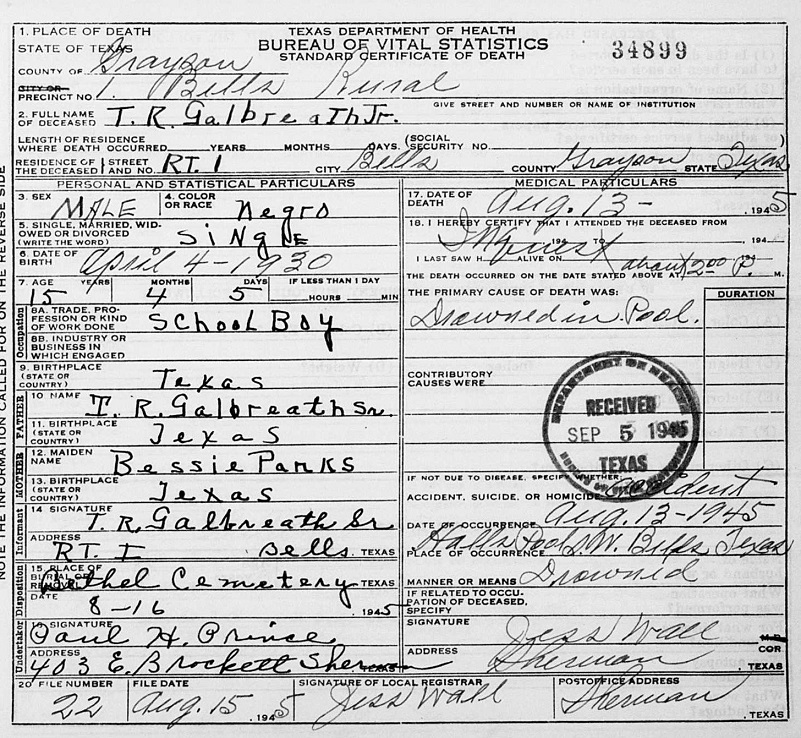 1. PLACE OF DEATH
STATE OF TEXAS
TEXAS DEPARTMENT OF HEALTH
BUREAU OF VITAL STATISTICS
STANDARD CERTIFICATE OF DEATH
34899
COUNTY OF Grayson
CITY OR
PRECINCT NO. 1. Bells Rural
GIVE STREET AND NUMBER OR NAME OF INSTITUTION
2. FULL NAME
OF DECEASED T. R. Galbreath Jr.
LENGTH OF RESIDENCE
WHERE DEATH OCCURRED YEARS MONTHS DAYS. (SOCIAL SECURITY NO. )
RESIDENCE OF THE DECEASED STREET AND NO. RT. 1 CITY Bells COUNTY Grayson STATE Texas
PERSONAL AND STATISTICAL PARTICULARS
3. SEX MALE
4. COLOR OR RACE Negro
5. SINGLE, MARRIED, WIDOWED OR DIVORCED
(WRITE THE WORD) SiNgle
6. DATE OF BIRTH April 4-1930
7. AGE YEARS MONTHS DAYS IF LESS THAN 1 DAY
15 4 5 HOURS MIN
Occupation
8A. TRADE, PROFESSION OR KIND OF WORK DONE School Boy
8B. INDUSTRY OR BUSINESS IN WHICH ENGAGED
9. BIRTHPLACE
(STATE OR COUNTRY) Texas
FATHER
10 NAME T. R. Galbreath Sr.
11. BIRTHPLACE
(STATE OR COUNTRY) Texas
MOTHER
12. MAIDEN NAME Bessie Parks
13. BIRTHPLACE
(STATE OR COUNTRY) Texas
Informant
14 SIGNATURE T. R. Galbreath Sr
ADDRESS RT. I Bells. TEXAS
Disposition
15. PLACE OF BURIAL OR REMOVAL Bethel Cemetery TEXAS
DATE 8-16 1945
Undertaker
SIGNATURE Paul H. Prince
ADDRESS 403 E. Brockett Sherman TEXAS
MEDICAL PARTICULARS
17. DATE OF DEATH Aug. 13- 1945
18. I HEREBY CERTIFY THAT I ATTENDED THE DECEASED FROM
Inquest 194 TO 194
I LAST SAW H ALIVE ON 194
THE DEATH OCCURRED ON THE DATE STATED ABOVE AT about 2:00 P. M.
THE PRIMARY CAUSE OF DEATH WAS: DURATION
Drowned in Pool.
CONTRIBUTORY CAUSES WERE
DEPARTMENT OF HEALTH
RECEIVED
SEP 5 1945
TEXAS
IF NOT DUE TO DISEASE, SPECIFY WHETHER:
ACCIDENT, SUICIDE, OR HOMICIDE Accident
DATE OF OCCURRENCE Aug. 13-1945
PLACE OF OCCURRENCE Halls Pool S.W. Bells Texas
MANNER OR MEANS Drowned
IF RELATED TO OCCUPATION OF DECEASED, SPECIFY
SIGNATURE Jess Wall M.D.
COR.
ADDRESS Sherman TEXAS
20 FILE NUMBER 22
FILE DATE Aug. 15 1945
SIGNATURE OF LOCAL REGISTRAR Jess Wall
POSTOFFICE ADDRESS Sherman TEXAS
NOTE THE INFORMATION CALLED FOR ON THE REVERSE SIDE